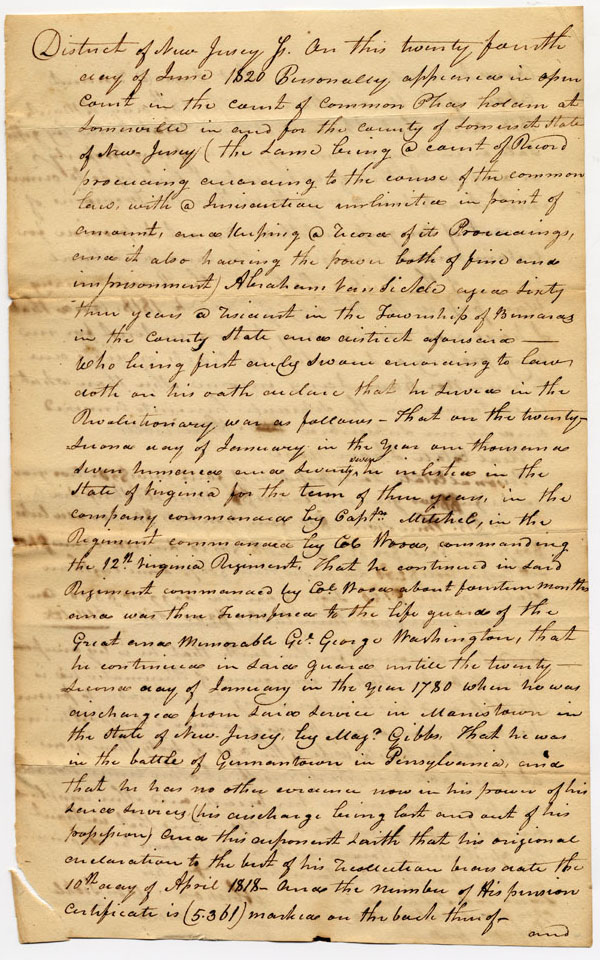 District of New Jersey Ss. On this twenty fourth
day of June 1820 Personally appeared in open
Court in the court of Common Pleas holden at
Somerville in and for the county of Somerset State
of New Jersey (the same being a court of Record
proceeding according to the course of the common
law, with a Jurisdiction unlimited in point of
amount, and keeping a Record of its Proceedings,
and it also having the power both of fine and
imprisonment) Abraham Van Sickle aged sixty
three years a resident in the Township of Bernards
in the County State and district aforesaid —
Who being first duly sworn according to law
doth on his oath declare that he served in the
Revolutionary war as follows - That on the twenty-
second day of January in the Year one thousand
seven hundred and seventy seven he inlisted in the
State of Virginia for the term of three years, in the
company commanded by Captn. Mitchel, in the
Regiment commanded by Col Wood, commanding
the 12th Virginia Regiment, That he continued in said
Regiment commanded by Col. Wood about fourteen months
and was then Transfered to the life guard of the
Great and Memorable Gel. George Washington, that
he continued in said guard untill the twenty —
second day of January in the year 1780 when he was
discharged from said service in Morristown in
the state of New Jersey, by Majr. Gibbs. That he was
in the battle of Germantown in Pensylvania, and
that he has no other evidence now in his power of his
said services (his discharge being lost and out of his
possession) And this deponent saith that his origional
declaration to the best of his Recollection bears date the
10th day of April 1818 - And the number of His pension
Certificate is (5.361) marked on the back thereof -
and